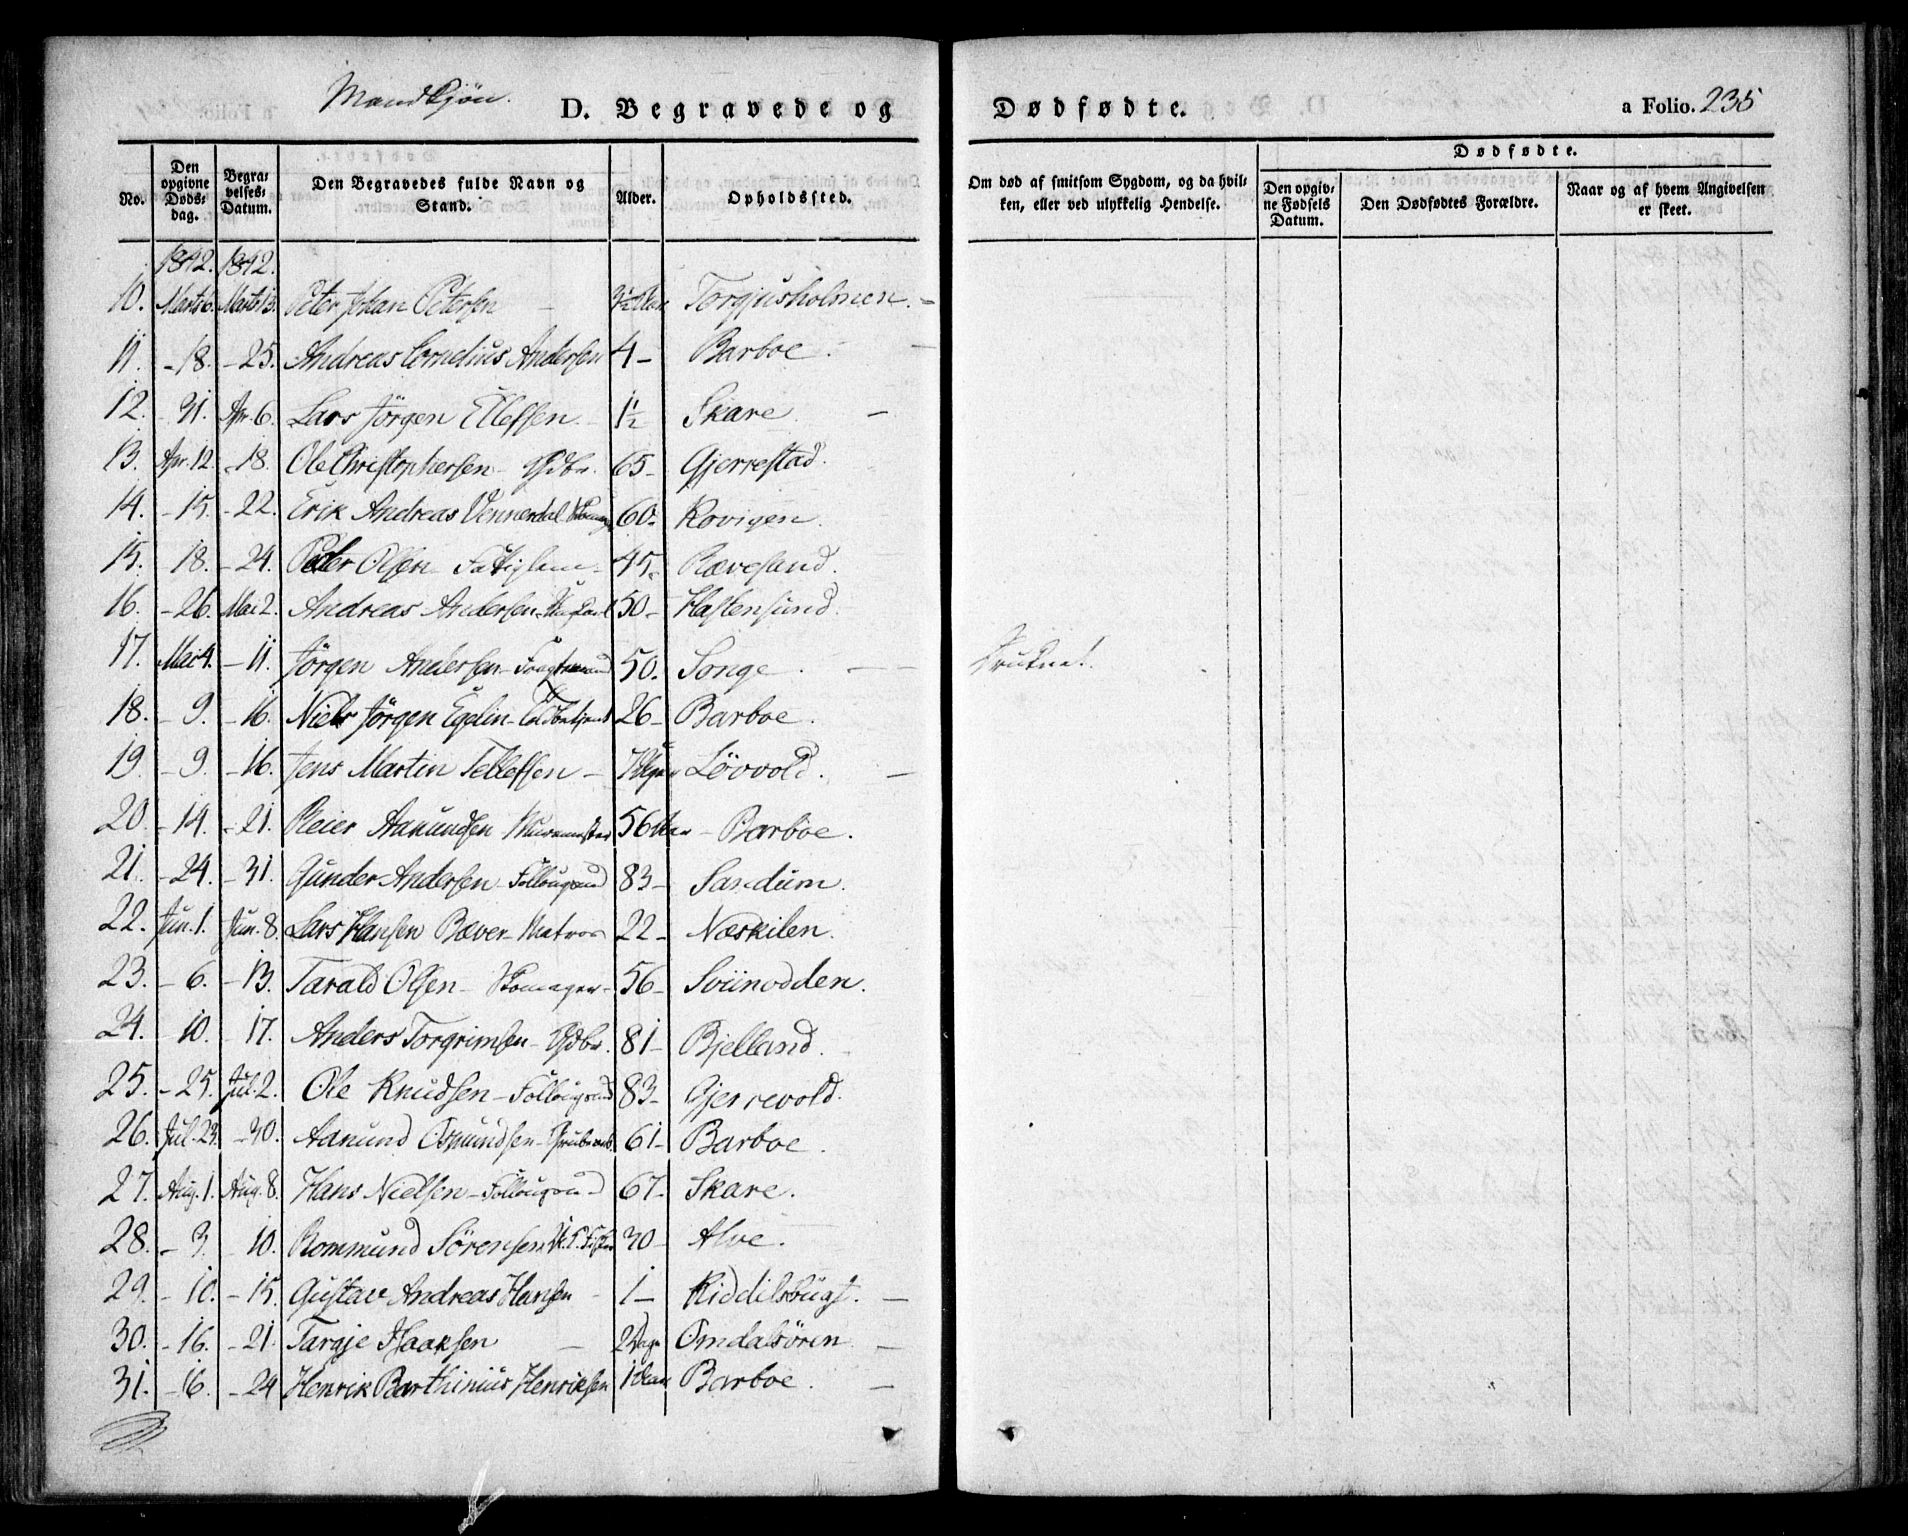 Mandkjøn.
D. Begravede og Dødfødte.
a Folio. 235
No.
Den opgivne Dødsdag.
Begravelses-Datum.
Den Begravedes fulde Navn og Stand.
Alder.
Opholdssted.
Om død af smitsom Sygdom, og da hvilken, eller ved ulykkelig Hendelse.
Dødfødte.
Den opgivne Fødsels Datum.
Den Dødfødtes Forældre.
Naar og af hvem Angivelsen er skeet.
1842. 1842.
10. Marts 6. Marts 13. Peter Johan Petersen — 3½ Aar Torjusholmen. —
11. - 18. - 25. Andreas Cornelius Andersen 4 - Barboe. —
12. - 31. Apr. 6. Lars Jörgen Ellefsen. - 1½ Skare —
13. Apr. 12. - 18. Ole Christophersen - Gdbr. 65 - Gjerrestad.
14. - 15. - 22. Erik Andreas Vennerdal 60 - Kovigen.
15. 18. - 24. Peder Olsen - Fattiglem - 45 - Rævesand.
16. - 26. Mai 2. Andreas Andersen - 50 - Hastensund.
17. Mai 4. - 11. Jörgen Andersen - 50. Songe. — Druknet.
18. - 9. - 16. Niels Jörgen Egelin - Toldbetjent 26 - Barboe.
19. - 9. - 16. Jens Martin Tellefsen - Lövvold. —
20. - 14. - 21. Reier Aanundsen Muurmester 56 Aar - Barboe.
21. - 24. - 31. Gunder Andersen - Follougsmd 83 - Sandum.
22. Jun. 1. Jun. 8. Lars Hansen Bæver - Matros 22 - Næskilen.
23. - 6. - 13. Tarald Olsen - Skomager - 56 - Sviinodden.
24. - 10. - 17. Anders Torgrimsen - Gdbr. 81 - Bjelland.
25. - 25. Jul. 2. Ole Knudsen - Follougsmd 83 - Gjerrevold.
26. Jul. 23. - 30. Aanund Osmundsen - Grubearb 61 - Barboe.
27. Aug. 1. Aug. 8. Hans Nielsen - Follougsmd 67 - Skare.
28. - 3. 10. Rommund Sörensen 30 - Alve.
29. - 10. - 15. Gustav Andreas Hansen - 1 - Kiddilsbugt. —
30. - 16. - 21. Targje Isaaksen — 2 Dage Omdalsören. —
31. - 16. - 24 Henrik Barthinius Henriksen 1 Aar Barboe. —